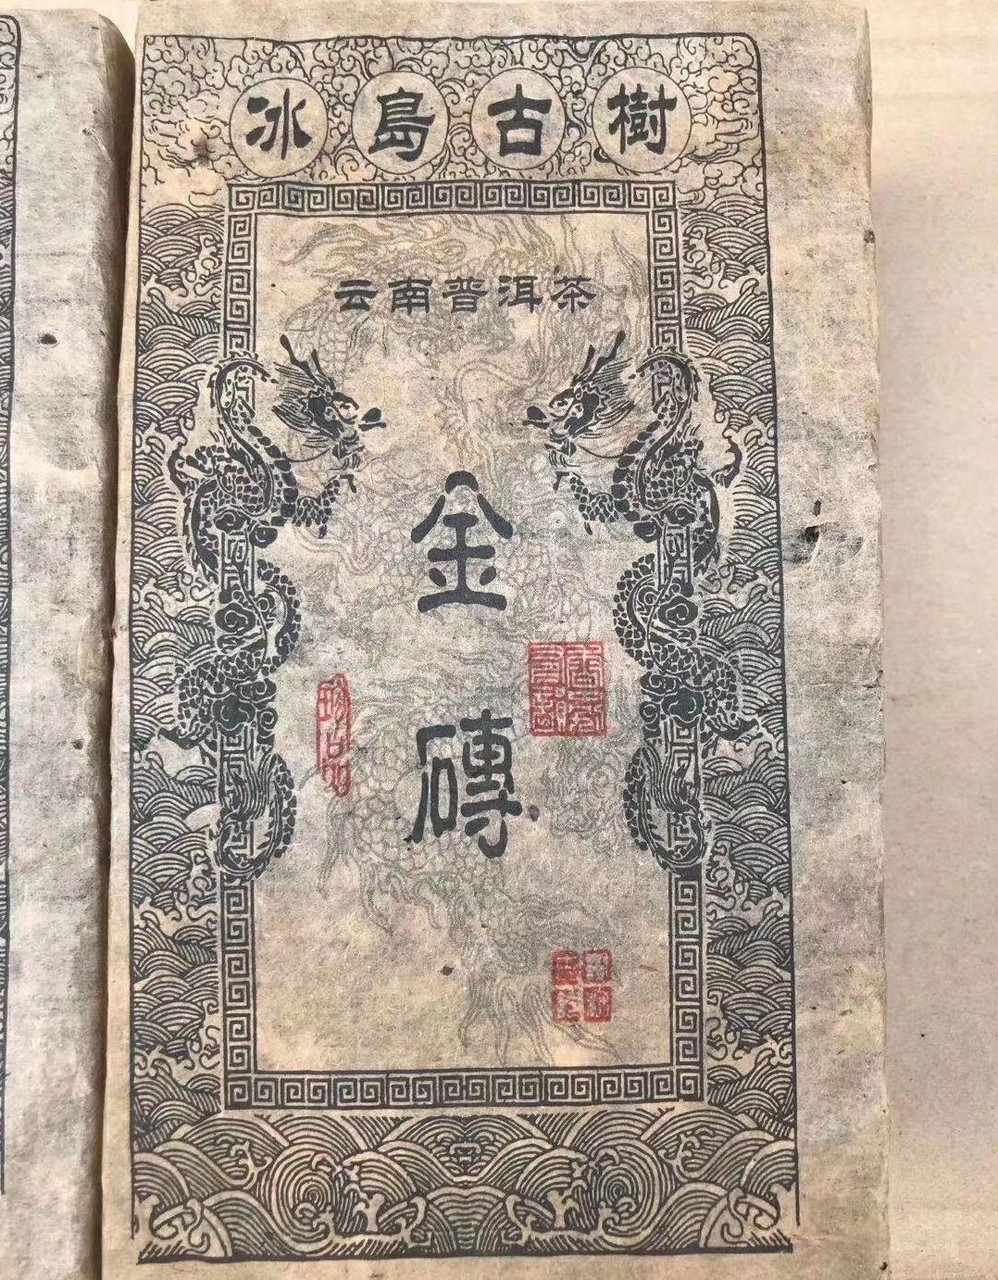 冰島古樹
云南普洱茶
金
磚
珍品